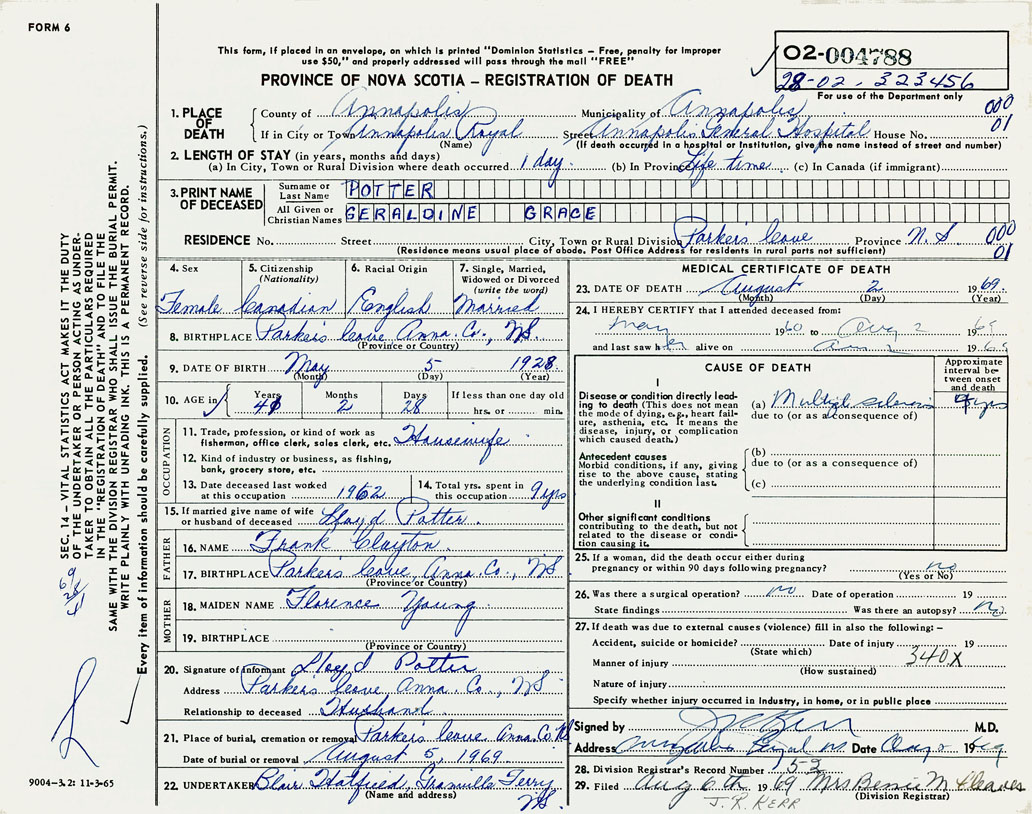 FORM 6
This form, if placed in an envelope, on which is printed "Dominion Statistics – Free, penalty for improper
use $50," and properly addressed will pass through the mail "FREE"
PROVINCE OF NOVA SCOTIA – REGISTRATION OF DEATH
O2-004788
28-02. 323456
For use of the Department only
1. PLACE OF DEATH
County of Annapolis Municipality of Annapolis 000
If in City or Town Annapolis Royal Street Annapolis General Hospital House No. 01
(Name) (If death occurred in a hospital or Institution, give the name instead of street and number)
2. LENGTH OF STAY (in years, months and days)
(a) In City, Town or Rural Division where death occurred 1 day. (b) In Province Life time. (c) In Canada (if immigrant)
3. PRINT NAME OF DECEASED
Surname or Last Name POTTER
All Given or Christian Names GERALDINE GRACE
RESIDENCE No. Street City, Town or Rural Division Parkers Cove Province N.S 000
(Residence means usual place of abode. Post Office Address for residents in rural parts not sufficient) 01
4. Sex Female
5. Citizenship (Nationality) Canadian
6. Racial Origin English
7. Single, Married, Widowed or Divorced (write the word) Married
8. BIRTHPLACE Parkers Cove Anna. Co., NS.
(Province or Country)
9. DATE OF BIRTH May 5 1928
(Month) (Day) (Year)
10. AGE in Years 41 Months 2 Days 28 If less than one day old
hrs. or min.
OCCUPATION
11. Trade, profession, or kind of work as fisherman, office clerk, sales clerk, etc. Housewife
12. Kind of industry or business, as fishing, bank, grocery store, etc.
13. Date deceased last worked at this occupation 1962
14. Total yrs. spent in this occupation 9 yrs
15. If married give name of wife or husband of deceased Lloyd Potter.
FATHER
16. NAME Frank Clayton.
17. BIRTHPLACE Parkers Cove, Anna. Co., NS
(Province or Country)
MOTHER
18. MAIDEN NAME Florence Young
19. BIRTHPLACE
(Province or Country)
20. Signature of informant Lloyd Potter
Address Parkers Cove, Anna. Co., NS
Relationship to deceased Husband.
21. Place of burial, cremation or removal Parkers Cove Anna. Co. NS
Date of burial or removal August 5, 1969.
22. UNDERTAKER Blair Hatfield, Granville Ferry
(Name and address) NS.
MEDICAL CERTIFICATE OF DEATH
23. DATE OF DEATH August 2 1969.
(Month) (Day) (Year)
24. I HEREBY CERTIFY that I attended deceased from:
May 1960 to Aug 2 1969
and last saw her alive on Aug 2 1969
CAUSE OF DEATH
Approximate interval between onset and death
I
Disease or condition directly leading to death (This does not mean the mode of dying, e.g., heart failure, asthenia, etc. It means the disease, injury, or complication which caused death.)
(a) Multiple sclerosis 9 yrs
due to (or as a consequence of)
Antecedent causes
Morbid conditions, if any, giving rise to the above cause, stating the underlying condition last.
(b)
due to (or as a consequence of)
(c)
II
Other significant conditions contributing to the death, but not related to the disease or condition causing it.
25. If a woman, did the death occur either during pregnancy or within 90 days following pregnancy? no
(Yes or No)
26. Was there a surgical operation? no Date of operation 19
State findings Was there an autopsy? no
27. If death was due to external causes (violence) fill in also the following: –
Accident, suicide or homicide? Date of injury 19
(State which)
Manner of injury 340X
(How sustained)
Nature of injury
Specify whether injury occurred in industry, in home, or in public place
Signed by J R Kerr M.D.
Address Annapolis Royal NS Date Aug 2 1969
28. Division Registrar's Record Number 153
29. Filed Aug 6th 1969 Mrs Bessie M Cleaves
(Division Registrar)
J. R. KERR
SEC. 14 – VITAL STATISTICS ACT MAKES IT THE DUTY
OF THE UNDERTAKER OR PERSON ACTING AS UNDER-
TAKER TO OBTAIN ALL THE PARTICULARS REQUIRED
IN THE "REGISTRATION OF DEATH" AND TO FILE THE
SAME WITH THE DIVISION REGISTRAR WHO SHALL ISSUE THE BURIAL PERMIT.
WRITE PLAINLY WITH UNFADING INK. THIS IS A PERMANENT RECORD.
Every item of information should be carefully supplied. (See reverse side for instructions.)
69
28
41
9004–3.2: 11-3-65